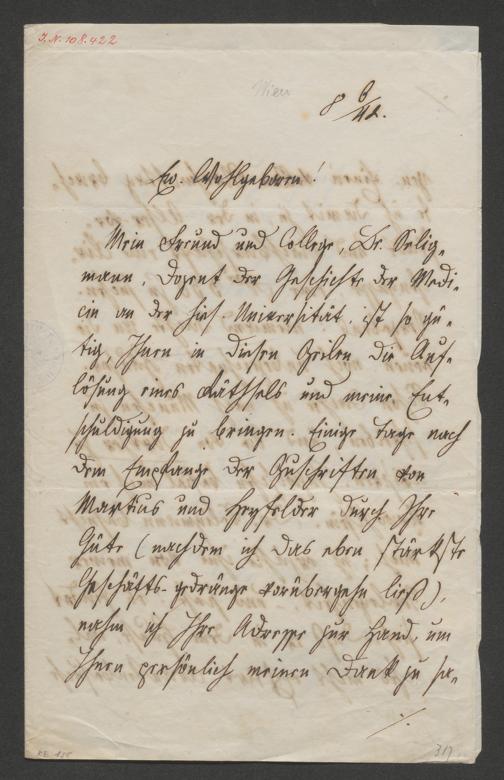 I.N. 108.422
Wien
8 6/42.
Ew. Wohlgeboren!
Mein Freund und College, Dr. Selig-
mann, Dozent der Geschichte der Medi-
cin an der hies. Universität, ist so gü-
tig, Ihnen in diesen Zeilen die Auf-
lösung eines Räthsels und meine Ent-
schuldigung zu bringen. Einige Tage nach
dem Empfange der Zuschriften von
Martius und Heyfelder durch Ihre
Güte (nachdem ich das eben stärkste
Geschäfts-gedränge vorübergehn ließ),
nahm ich Ihre Adresse zur Hand, um
Ihnen persönlich meinen Dank zu sa-
./.
317